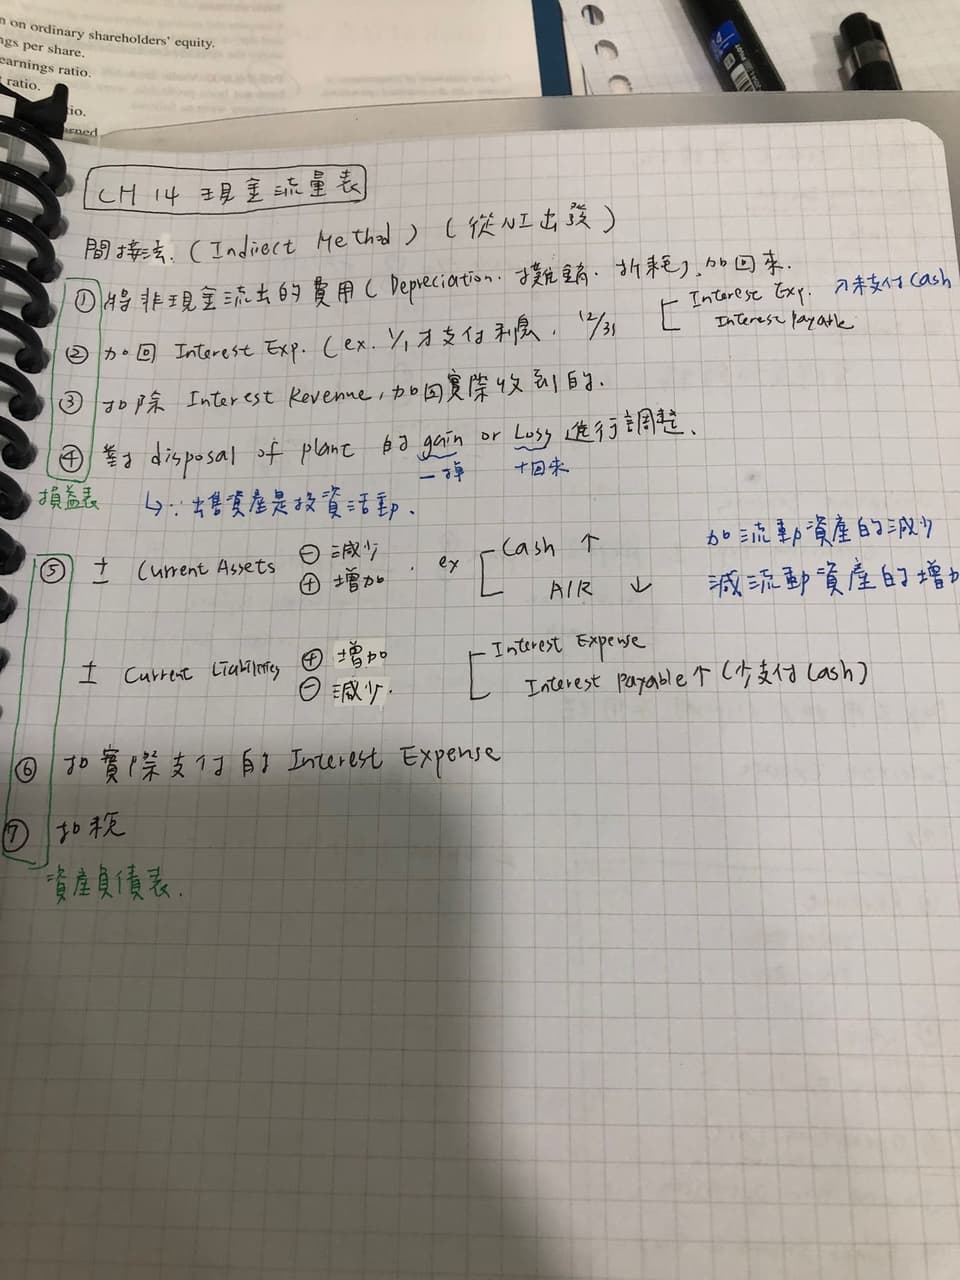 n on ordinary shareholders' equity.
ngs per share.
earnings ratio.
ratio.
io.
arned
CH 14 現金流量表
間接法.(Indirect Method) (從NI出發)
① 將非現金流出的費用(Depreciation.攤銷.折耗),加回來.
Interest Exp. 未支付Cash
Interest payable
② 加回 Interest Exp. (ex. 1/1才支付利息. 12/31
③ 扣除 Interest Revenue,加回實際收到的.
④ 對 disposal of plant 的 gain or Loss 進行調整.
一掉 +回來
損益表 ↳ ∵出售資產是投資活動.
⑤ ± Current Assets ⊖ 減少 . ex Cash ↑ 加流動資產的減少
⊕ 增加 A/R ↓ 減流動資產的增加
± Current Liabilities ⊕ 增加 Interest Expense
⊖ 減少. Interest payable ↑ (少支付Cash)
⑥ 扣實際支付的 Interest Expense
⑦ 扣稅
資產負債表.